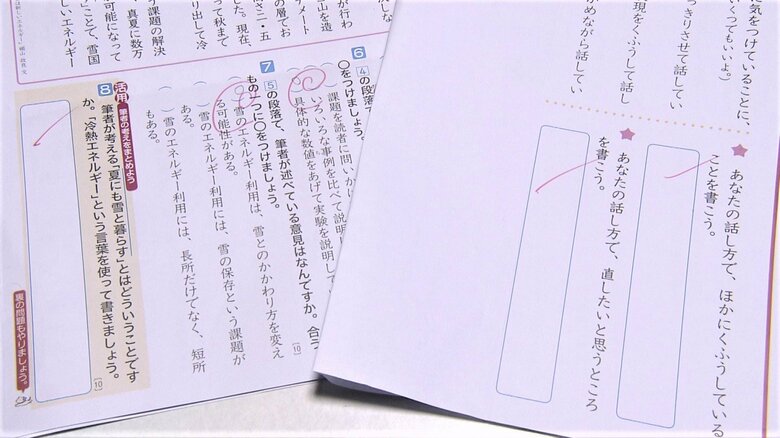 気をつけていることに、
いくつ てもいいよ。）
っきりさせて話してい
現をくふうして話し
かめながら話してい
あなたの話し方で、ほかにくふうしている
ことを書こう。
あなたの話し方で、直したいと思うところ
を書こう。
が行わ
山を造
メート
の層でお
さ二・五
した。現在、
って秋まで
り出して冷
う課題の解決
、真夏に数万
可能になって
ことで、雪国
しいエネルギー
6
4の段落
○をつけましょう。
課題を読者に問いか
いろいろな事例を比べて説明し
具体的な数値をあげて実験を説明して
7
5の段落で、筆者が述べている意見はなんですか。合う
もの一つに○をつけましょう。
（10）
雪のエネルギー利用は、雪とのかかわり方を変え
る可能性がある。
（ ）雪のエネルギー利用には、雪の保存という課題が
ある。
（ ）雪のエネルギー利用には、長所だけでなく、短所
もある。
活用
筆者の考えをまとめよう
8
筆者が考える「夏にも雪と暮らす」とはどういうことです
か。「冷熱エネルギー」という言葉を使って書きましょう。
（10）
裏の問題もやりましょう。